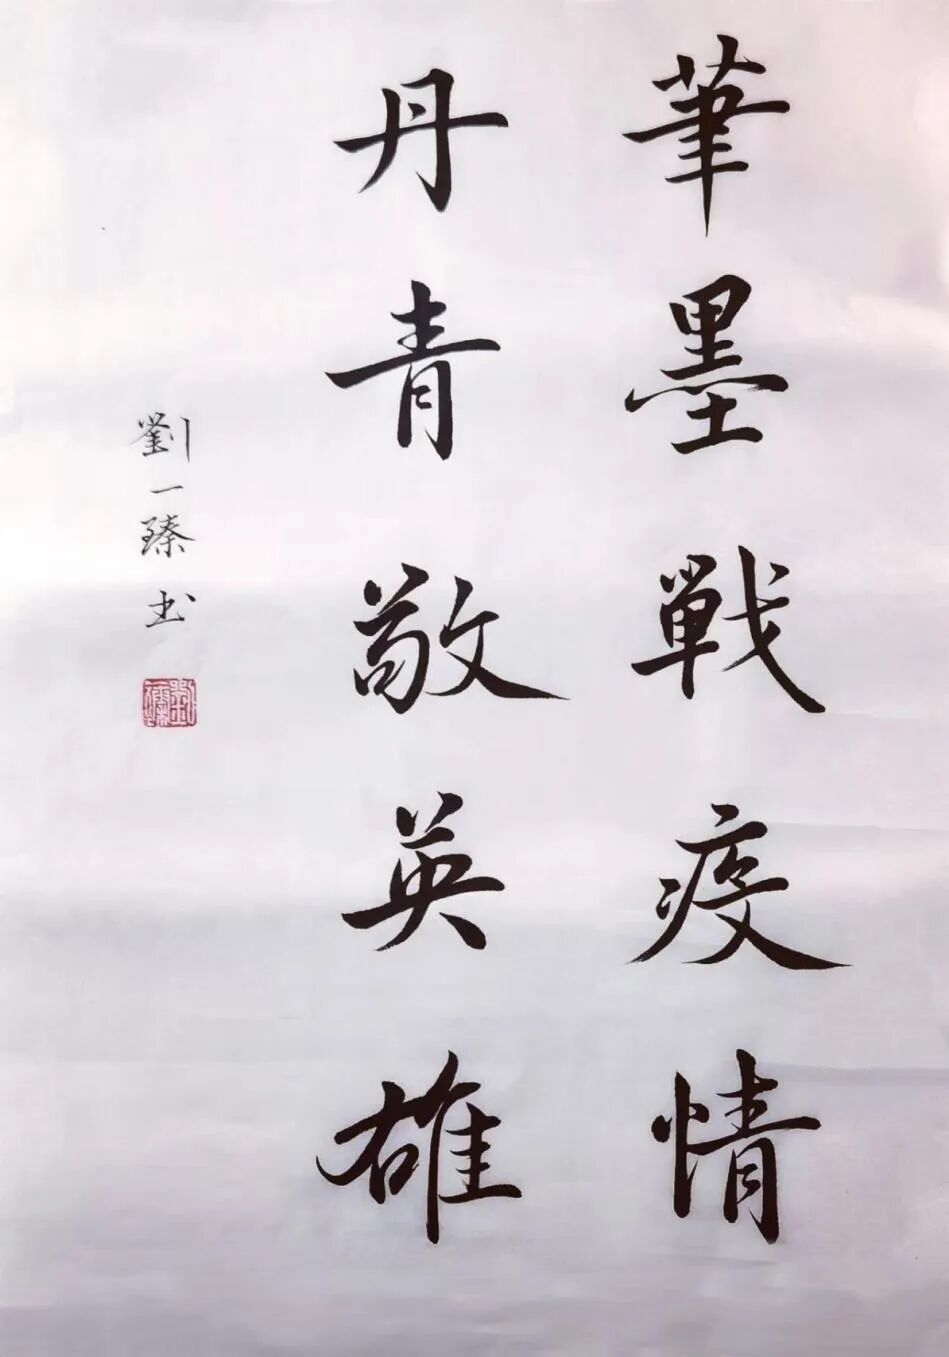 筆墨戰疫情
丹青敬英雄
劉一臻书